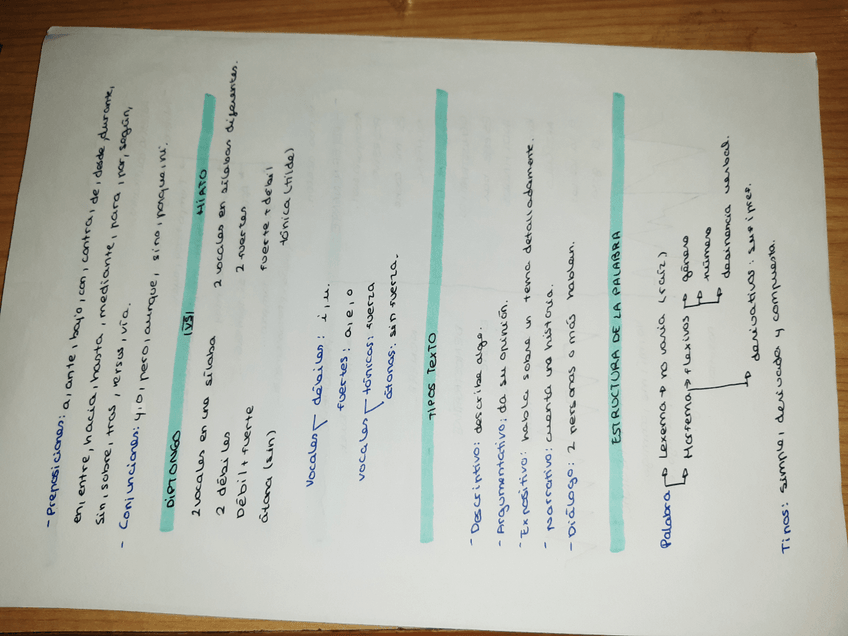 - Preposiciones: a, ante, bajo, con, contra, de, desde, durante,
en, entre, hacia, hasta, mediante, para, por, según,
sin, sobre, tras, versus, vía.
- Conjunciones: y, o, pero, aunque, sino, porque, ni.
DIPTONGO |VS| HIATO
2 vocales en una sílaba 2 vocales en sílabas diferentes.
2 débiles 2 fuertes
Débil + fuerte fuerte + débil
átona (sin) tónica (tilde)
Vocales débiles: i, u.
fuertes: a, e, o
vocales tónicas: fuerza
átonas: sin fuerza.
TIPOS TEXTO
- Descriptivo: describe algo.
- Argumentativo: da su opinión.
- Expositivo: habla sobre un tema detalladamente.
- Narrativo: cuenta una historia.
- Diálogo: 2 personas o más hablan.
ESTRUCTURA DE LA PALABRA
Palabra → Lexema → no varía (raíz)
→ Morfema → flexivos → género
→ número
→ desinencia verbal.
→ derivativos: suf i pref.
Tipos: simple, derivada y compuesta.